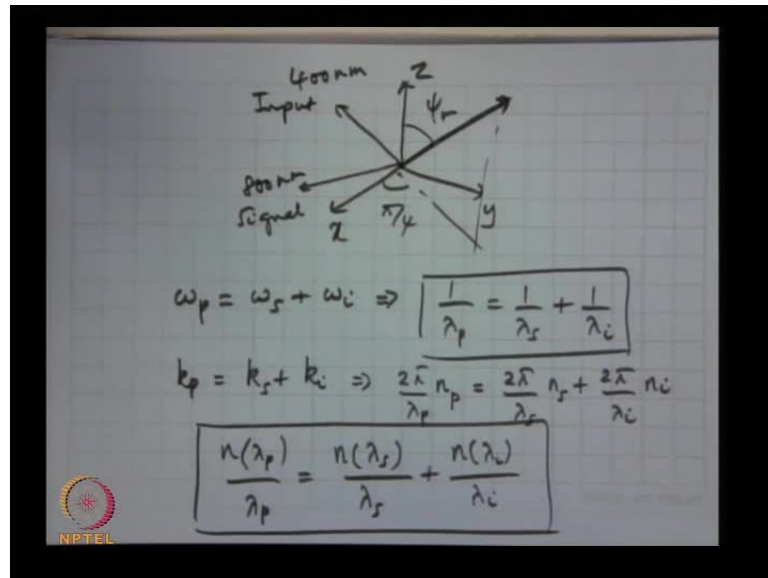 400nm
Input
z
ψr
800nm
Signal
x
π/4
y
ωp = ωs + ωi ⇒ 1/λp = 1/λs + 1/λi
kp = ks + ki ⇒ 2π/λp np = 2π/λs ns + 2π/λi ni
n(λp)/λp = n(λs)/λs + n(λi)/λi
NPTEL